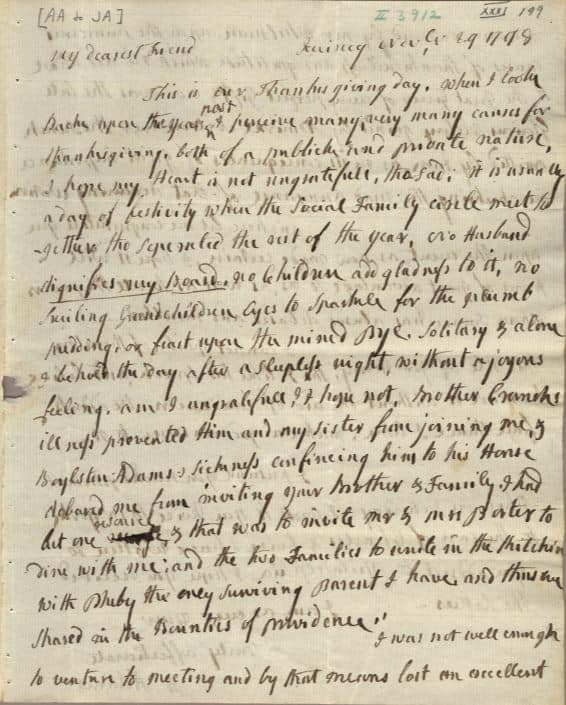 [AA to JA]
II 3912
XXXI 199
My dearest Friend Quincy Novbr 29 1798
This is our Thanksgiving day. When I look
Back upon the year past & perceive many, very many causes for
thanksgiving, both of a publick and private nature,
I hope my Heart is not ungratefull, tho sad; it is usually
a day of festivity when the Social Family circle meet to
gether tho seperated the rest of the year, no Husband
dignifies my Board, no Children add gladness to it, no
Smiling Grandchildren Eyes to Sparkle for the plumb
pudding, or feast upon the mincd Pye. Solitary & alone
I behold the day after a sleepless night, without a joyous
feeling. am I ungratefull? I hope not, Brother Cranchs
illness prevented Him and my sister from joining me, &
Boylston Adams's Sickness confineing him to his House
debared me from inviting your Brother & Family. I had
but one resource & that was to invite mr & mrs Porter to
dine with me; and the two Families to unite in the Kitchin
with Pheby the only surviving parent I have, and thus we
shared in the Bounties of providence."
I was not well enough
to venture to meeting and by that means lost an excellent